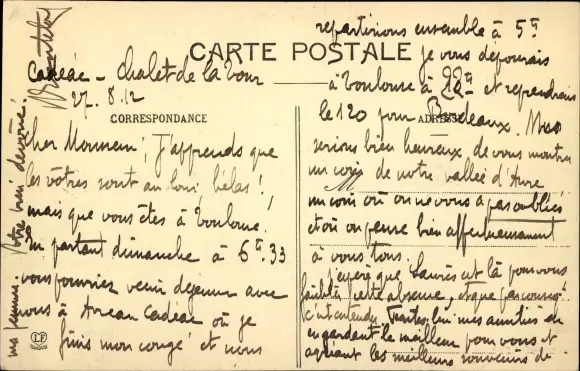 CARTE POSTALE
CORRESPONDANCE
ADRESSE
Cadéac - Chalet de la Tour
27. 8. 12
Cher Monsieur, J'apprends que
les vôtres sont au loin, hélas!,
mais que vous êtes à Toulouse.
En partant dimanche à 6h.33
vous pourriez venir déjeuner avec
nous à Arreau Cadéac où je
finis mon congé et nous
repartirions ensemble à 5h
je vous déposerais
à Toulouse à 22h et reprendrais
le 120 pour Bordeaux. Nous
serions bien heureux de vous montrer
un coin de notre vallée d'Aure
un coin où on ne vous a pas oubliés
et où on pense bien affectueusement
à vous tous.
J'espère que est là pour vous
cette absence, et que
mes amitiés en
gardant le meilleur pour vous et
agréant les meilleurs souvenirs de
ma femme. Votre bien dévoué.
LF